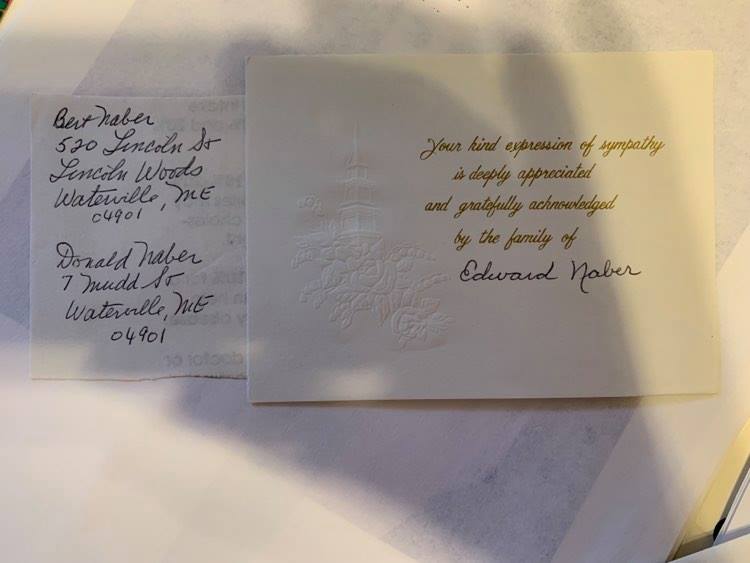 Bert Naber
520 Lincoln St
Lincoln Woods
Waterville, ME
04901
Donald Naber
7 Mudd St
Waterville, ME
04901
Your kind expression of sympathy
is deeply appreciated
and gratefully acknowledged
by the family of
Edward Naber